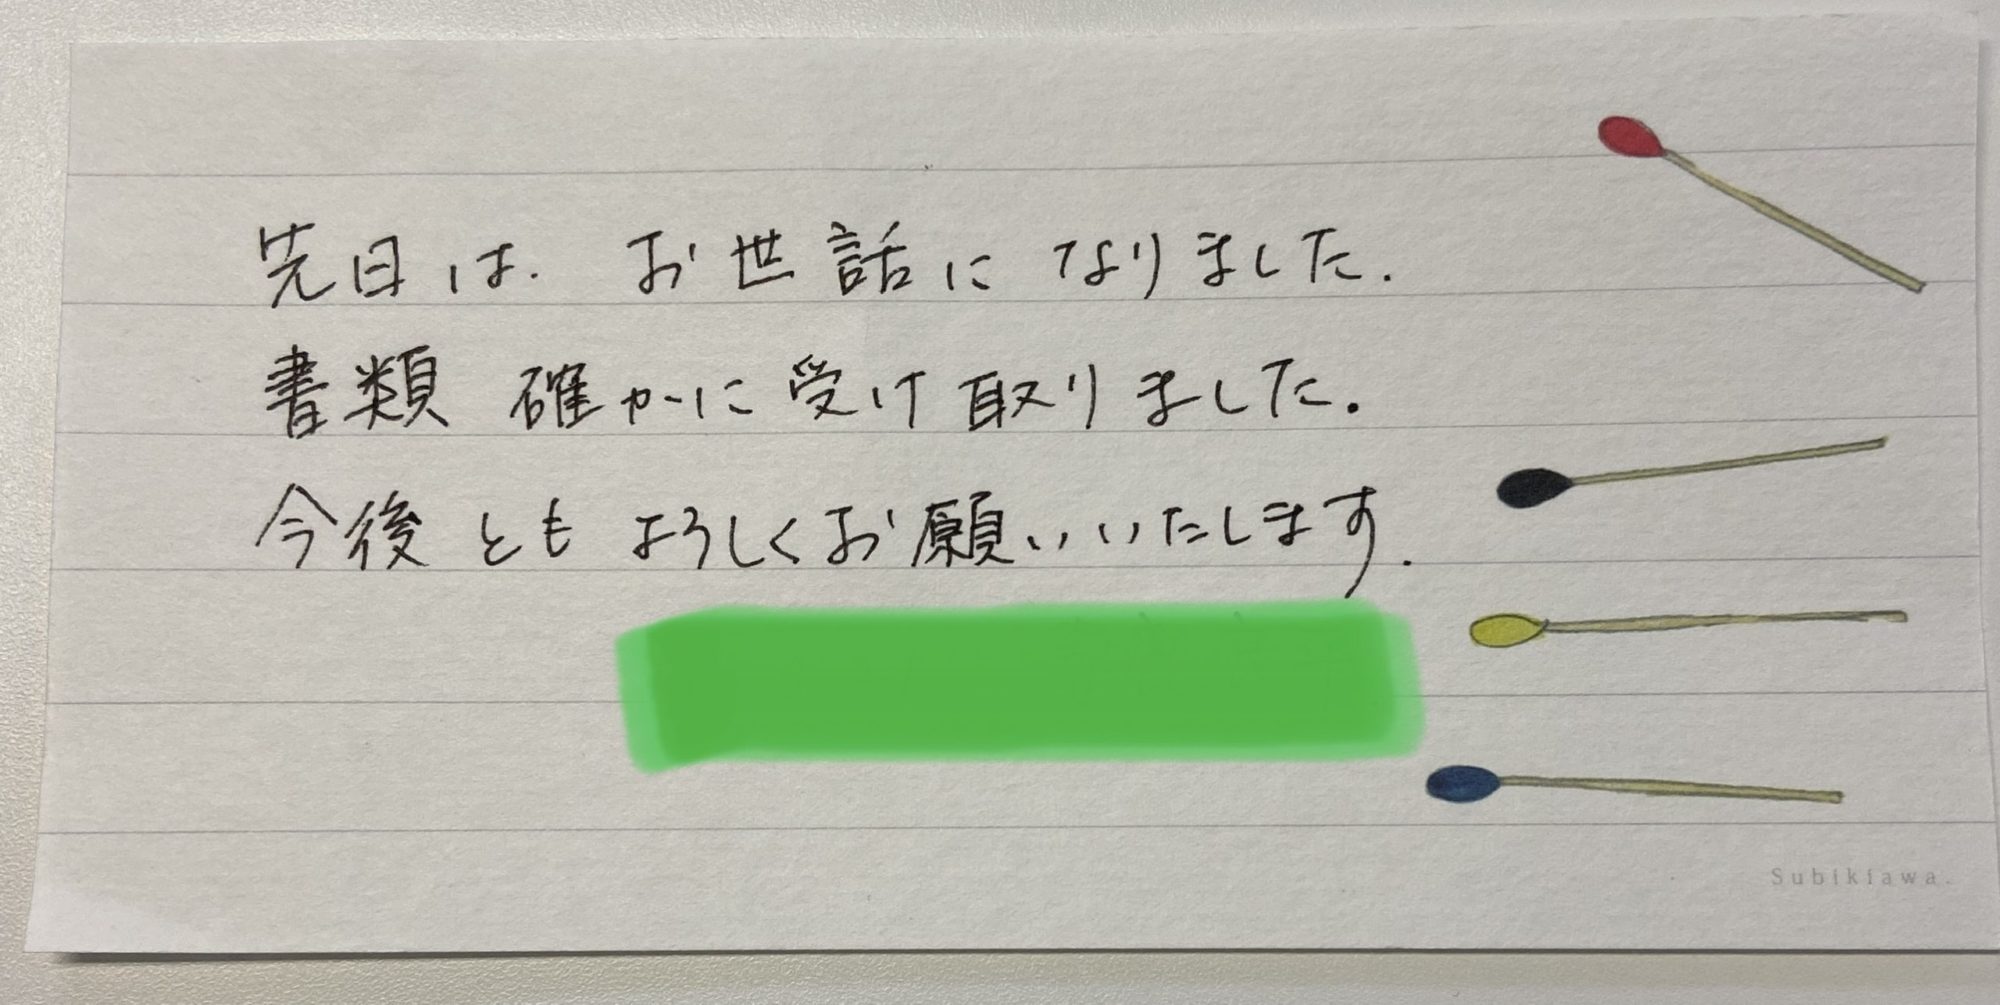 先日は. お世話になりました.
書類 確かに受け取りました.
今後とも よろしくお願いいたします.
Subikiawa.